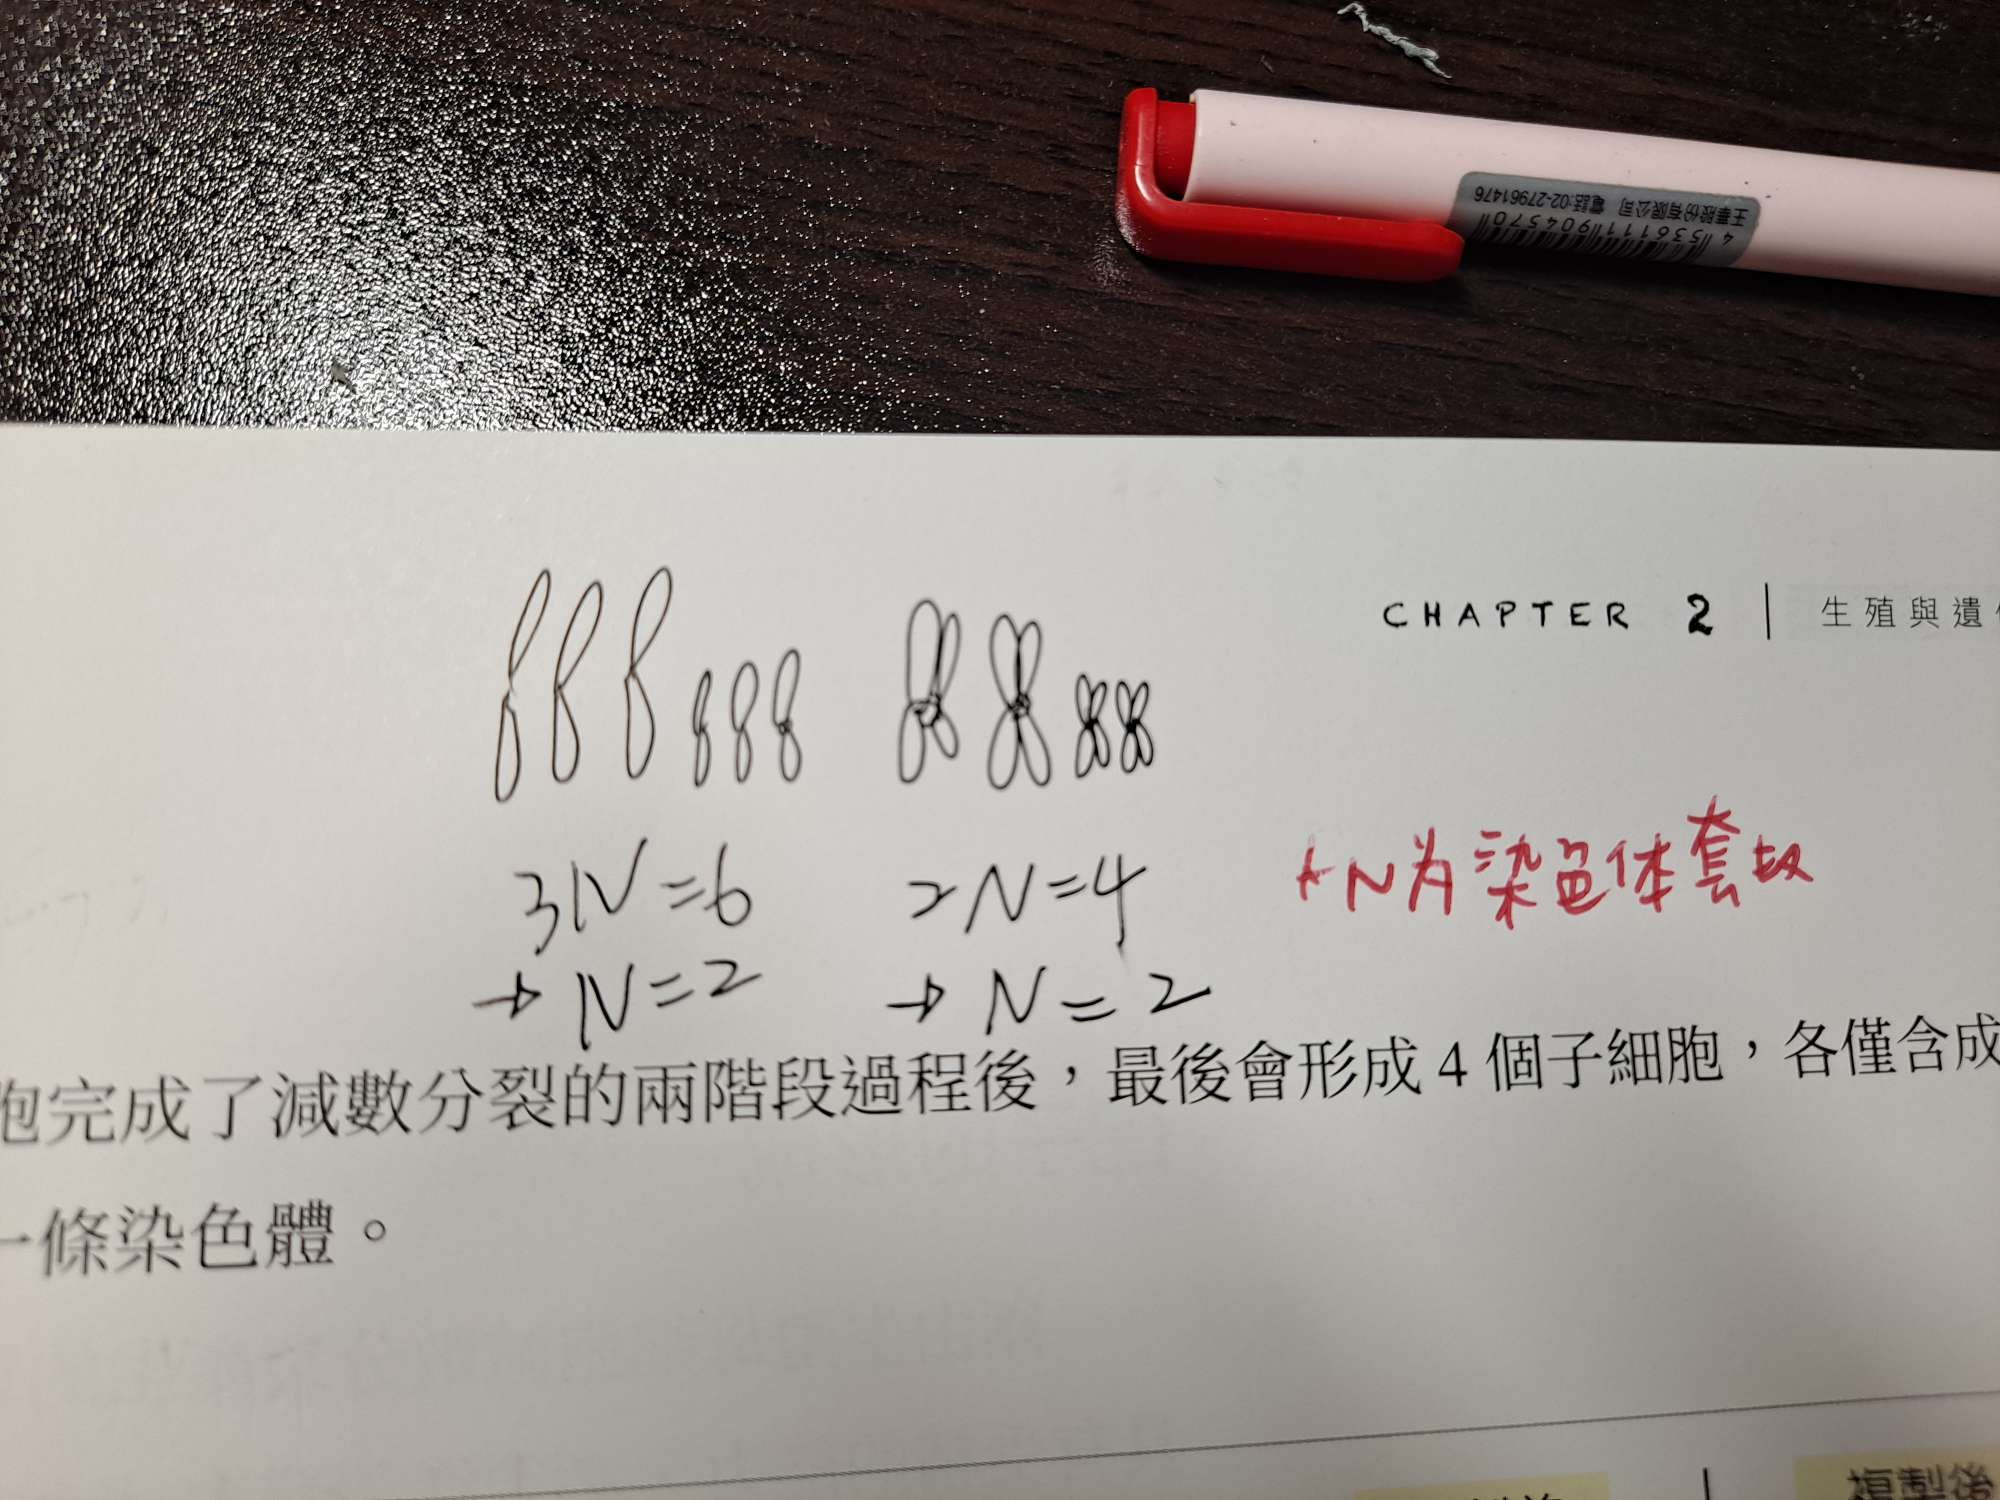 4 536111 904570
王華股份有限公司 電話:02-27961476
CHAPTER 2 | 生殖與遺
3N=6 2N=4
→ N=2 → N=2
N为染色体套数
胞完成了減數分裂的兩階段過程後，最後會形成 4 個子細胞，各僅含成
一條染色體。
複製後